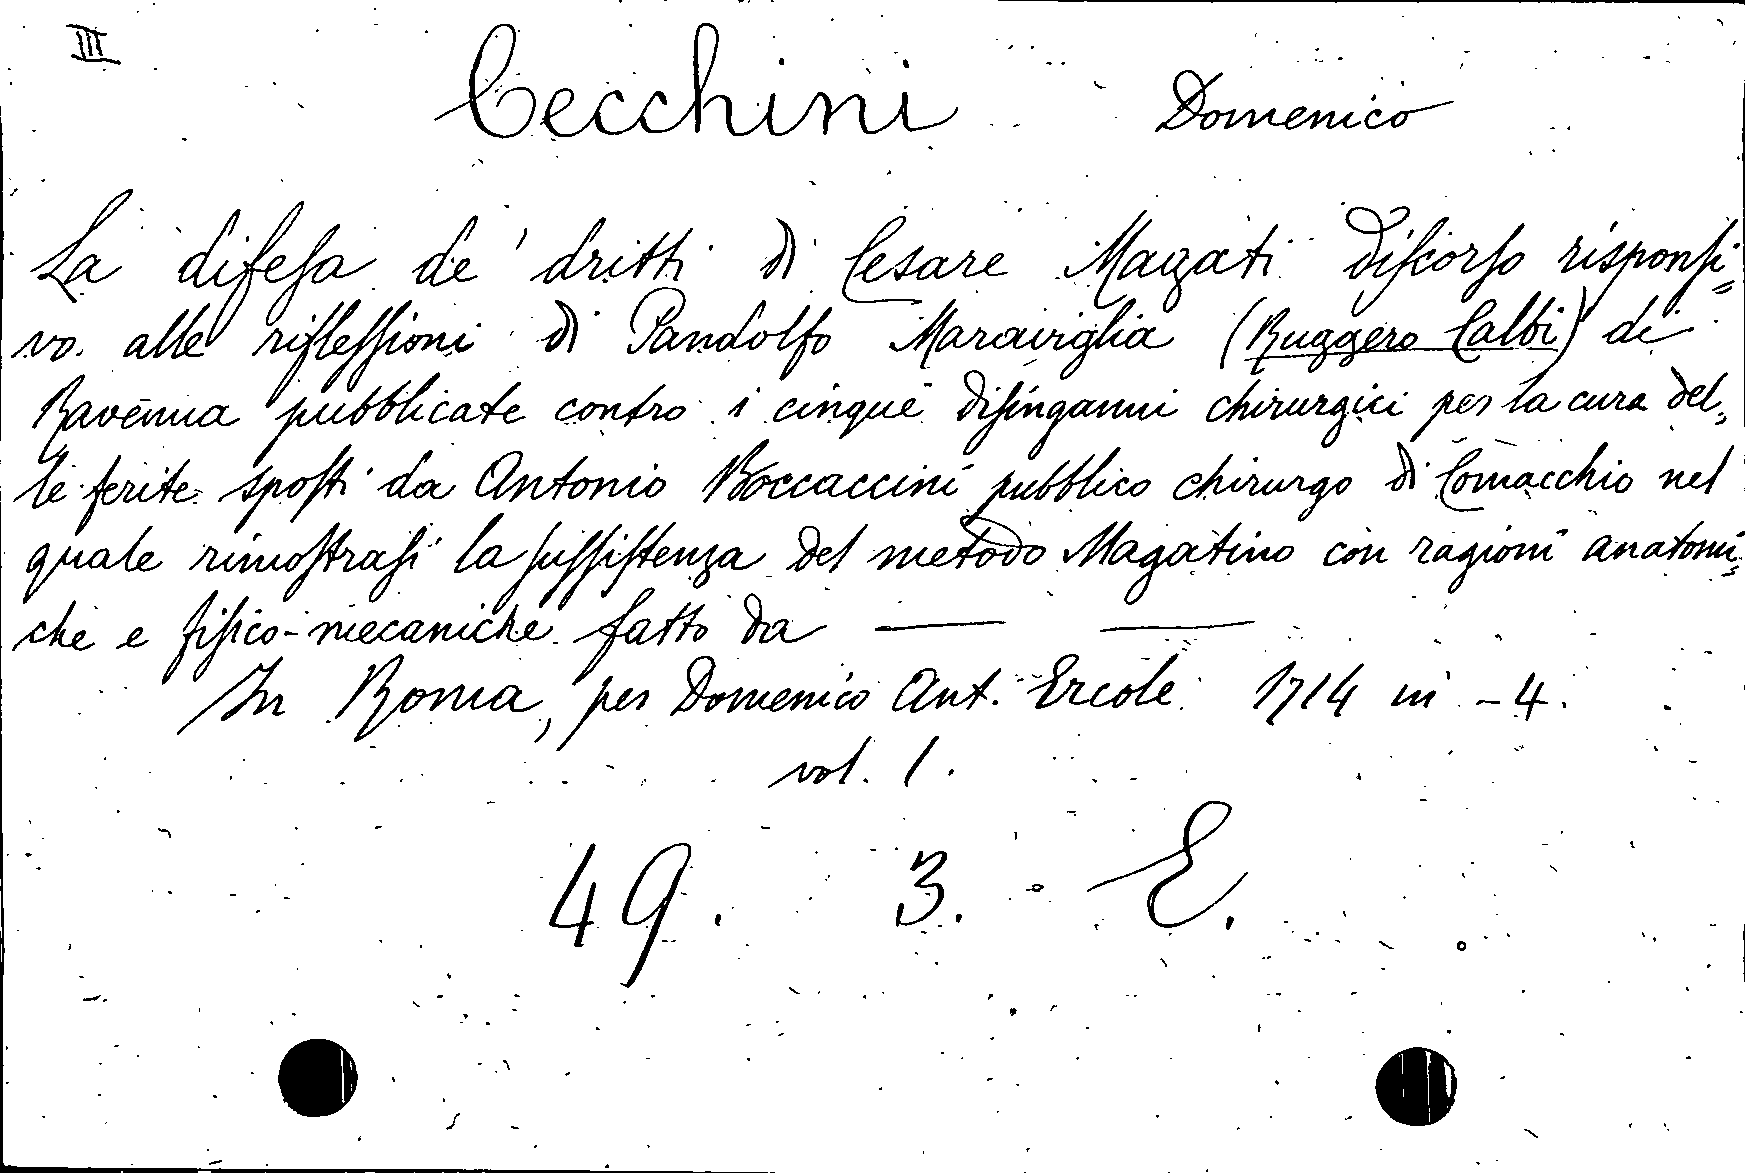 III
Cecchini Domenico
La difeſa de' dritti di Cesare Magati diſcorſo risponſi=
vo alle rifleſſioni di Pandolfo Maraviglia (Ruggero Calbi) di
Ravenna pubblicate contro i cinque diſinganni chirurgici per la cura del=
le ferite spoſti da Antonio Boccaccini pubblico chirurgo di Comacchio nel
quale rimoſtraſi la ſuſſiſtenza del metodo Magatino con ragioni anatomi=
che e fiſico-mecaniche fatto da — —
In Roma, per Domenico Ant. Ercole 1714 in -4.
vol. 1.
49. 3. E.